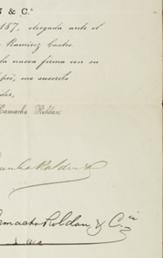 & C.ª
187, otorgada ante el
Ramirez Castro.
la nueva firma con su
me suscribo
Camacho Roldan
Camacho Roldan &
Camacho Roldan & C.ia